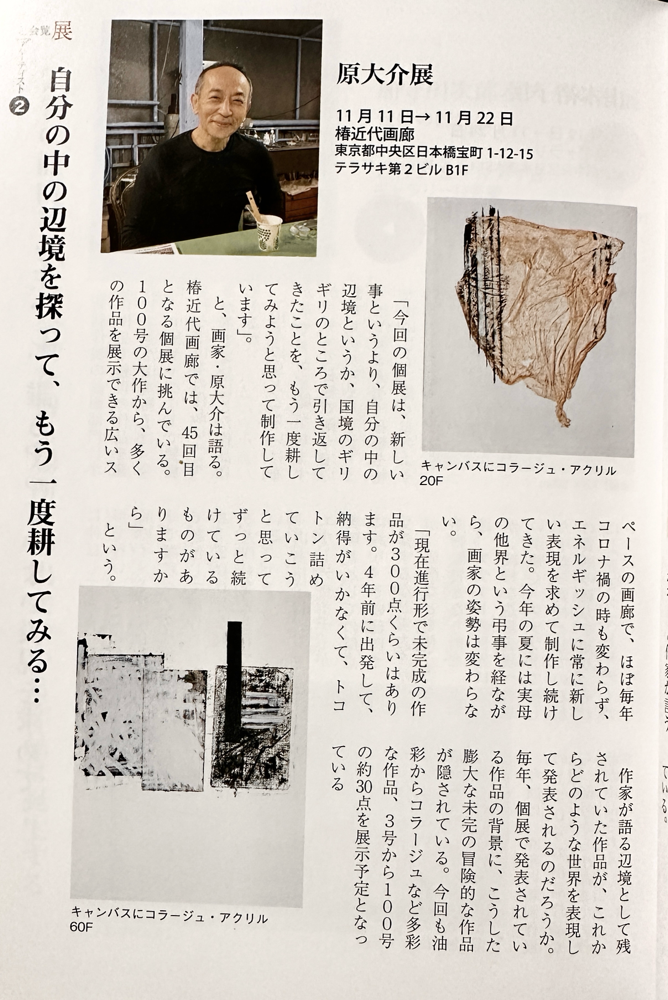 展
覧会
アーティスト
❷
自分の中の辺境を探って、もう一度耕してみる…
原大介展
11月11日→11月22日
椿近代画廊
東京都中央区日本橋宝町1-12-15
テラサキ第2ビルB1F
「今回の個展は、新しい
事というより、自分の中の
辺境というか、国境のギリ
ギリのところで引き返して
きたことを、もう一度耕し
てみようと思って制作して
います」。
と、画家・原大介は語る。
椿近代画廊では、45回目
となる個展に挑んでいる。
100号の大作から、多く
の作品を展示できる広いス
キャンバスにコラージュ・アクリル
20F
ペースの画廊で、ほぼ毎年
コロナ禍の時も変わらず、
エネルギッシュに常に新し
い表現を求めて制作し続け
てきた。今年の夏には実母
の他界という弔事を経なが
ら、画家の姿勢は変わらな
い。
「現在進行形で未完成の作
品が300点くらいはあり
ます。4年前に出発して、
納得がいかなくて、トコ
トン詰め
ていこう
と思って
ずっと続
けている
ものがあ
りますか
ら」
という。
作家が語る辺境として残
されていた作品が、これか
らどのような世界を表現し
て発表されるのだろうか。
毎年、個展で発表されてい
る作品の背景に、こうした
膨大な未完の冒険的な作品
が隠されている。今回も油
彩からコラージュなど多彩
な作品、3号から100号
の約30点を展示予定となっ
ている
キャンバスにコラージュ・アクリル
60F